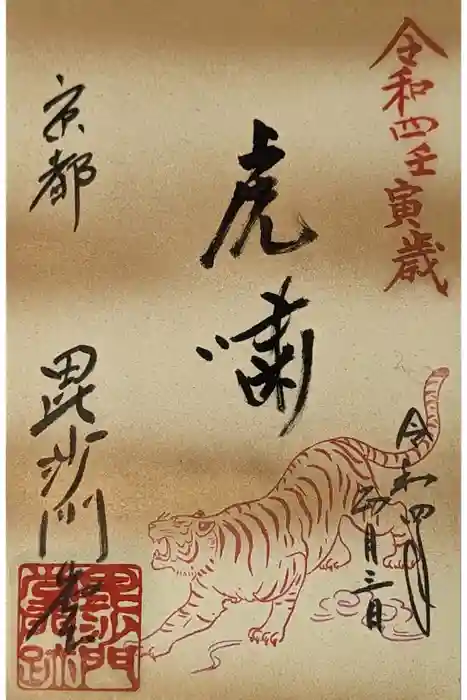 令和四壬寅歳
虎嘯
令和四年
月三日
京都
毘沙門堂